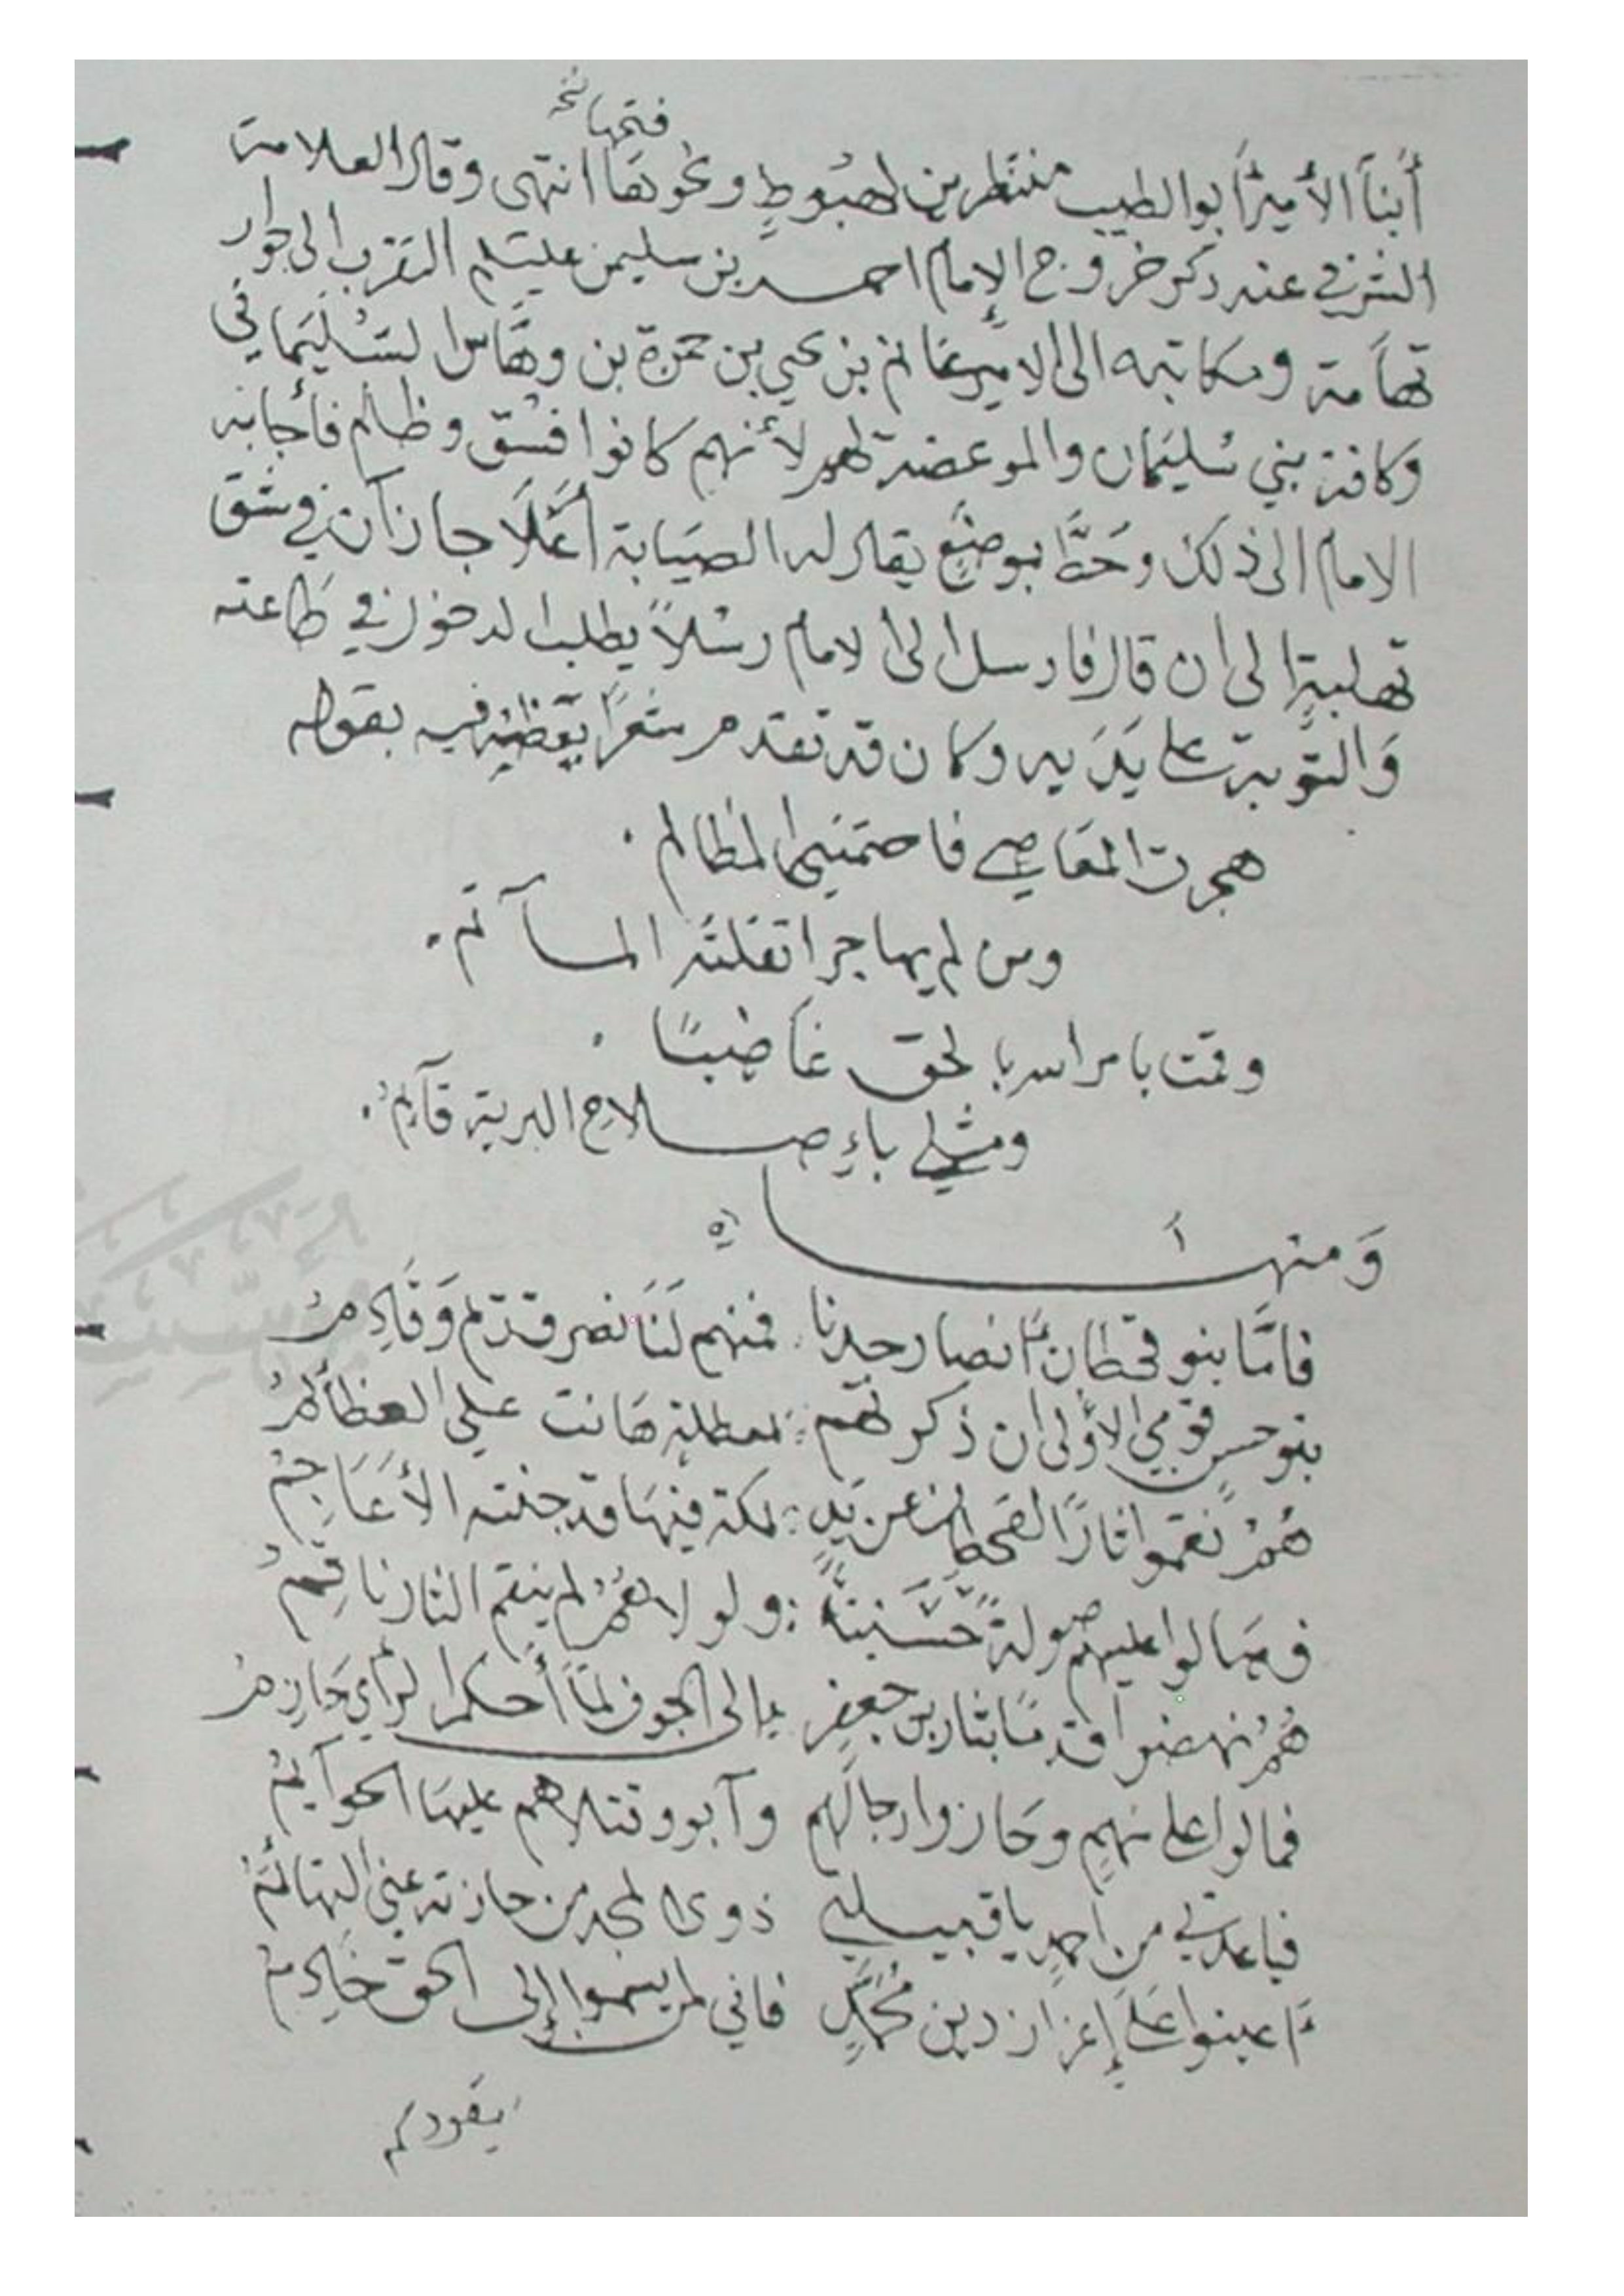 فتحها نخ
أبنآ الأميرأبو الطيب منتظرين لهبوطٍ ونحو تها انتهى وقال العلامة
الشرفي عند ذكر خروج الإمام احمد بن سليمن عليسلم التقرب الى جوار
تهامة ومكاتبه الى الامير غانم بن يحيي بن حمزة بن وهّاس السُّلَيماني
وكافة بني سُليمان والموعضة لهم لأنهم كانوا فسق وظالم فأجابه
الامام الى ذلك وحَطَّ بموضعٍ يقال له الصيابة أعَلَا جازآن في شق
تهلبة الى ان قال فارسل الى الامام رسُلاً يطلب الدخول في طاعته
وَالتّوبة على يَدَيه وكان قد تقدم شعراً يقظه فيه بقوله
هجرت المعَاصي فاحتمنها المظالم .
ومن لم يهاجر اتقلته المسآتم .
وقمت بامر الله بالحق غاضبًا .
ومثلي باءِصلاح البرية قآئم .
وَمنهَا
فامّا بنو قحطان أنصار جدنا . فمنهم لنَا نصر قديم وَقَادِمُ
بنو حسن قومي الأولى ان ذكرتهم : هانت علي العظآئمُ
هُمُ نقموا ثارًا لقحطان عن يدٍ : بمكة فيهَا قد جنته الأعَاجمُ
وصَالوا عليهم صولةً حَسَنيةً : ولولاهُمُ لم ينقم الثار ناقمُ
هُمُ نهضوا قدمًا بثار بن جعفرٍ الى الجوف لمّا أحكم الرأي حَازمُ
فمالوا على نهمٍ وحَازوا رجالهم وآبو وقتلاهم عليهَا الحوآئمُ
فباعدني من احمدٍ يا قبيلتي ذوى المجد من حازته عني التهائمُ
أعينوا عَلَى إعزاز دين مُحَمَّدٍ فاني لمن يسموا إلى الحق خادمُ
يقودكم